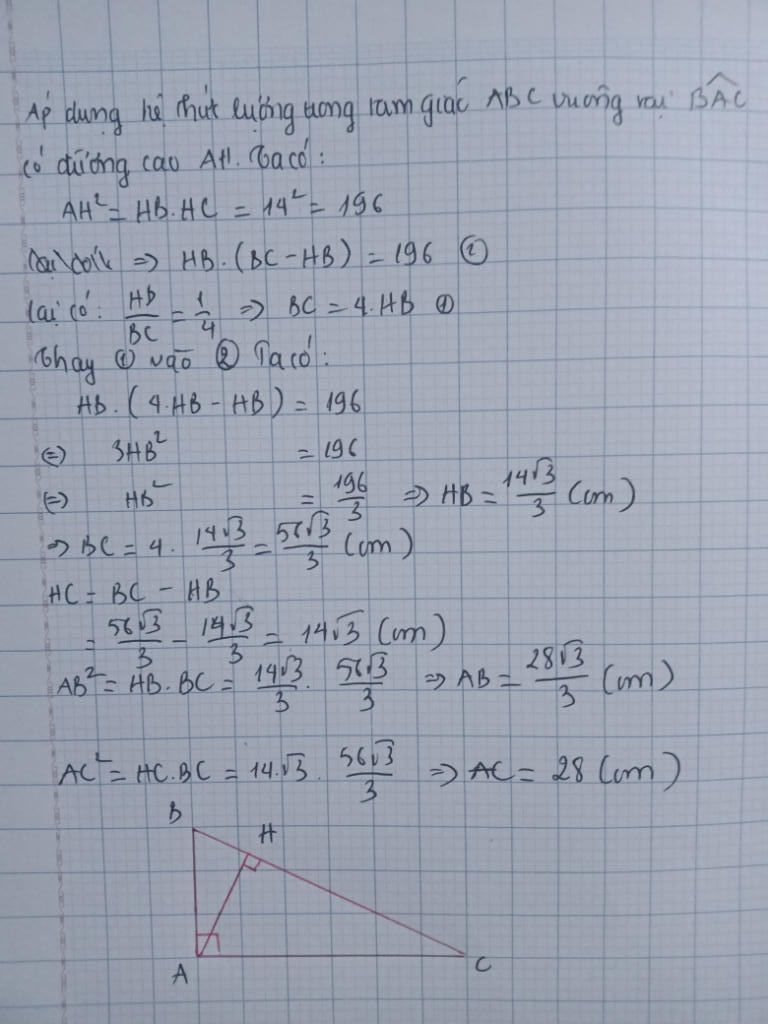 Áp dụng hệ thức lượng trong tam giác ABC vuông tại BÂC
có đường cao AH. Ta có:
AH² = HB.HC = 14² = 196
=> HB.(BC-HB) = 196 ②
lại có: HB/BC = 1/4 => BC = 4.HB ①
Thay ① vào ② Ta có:
HB.(4.HB-HB) = 196
<=> 3HB² = 196
<=> HB² = 196/3 => HB = 14√3/3 (cm)
=> BC = 4. 14√3/3 = 56√3/3 (cm)
HC = BC - HB
= 56√3/3 - 14√3/3 = 14√3 (cm)
AB² = HB.BC = 14√3/3 . 56√3/3 => AB = 28√3/3 (cm)
AC² = HC.BC = 14.√3 . 56√3/3 => AC = 28 (cm)
B
H
A
C